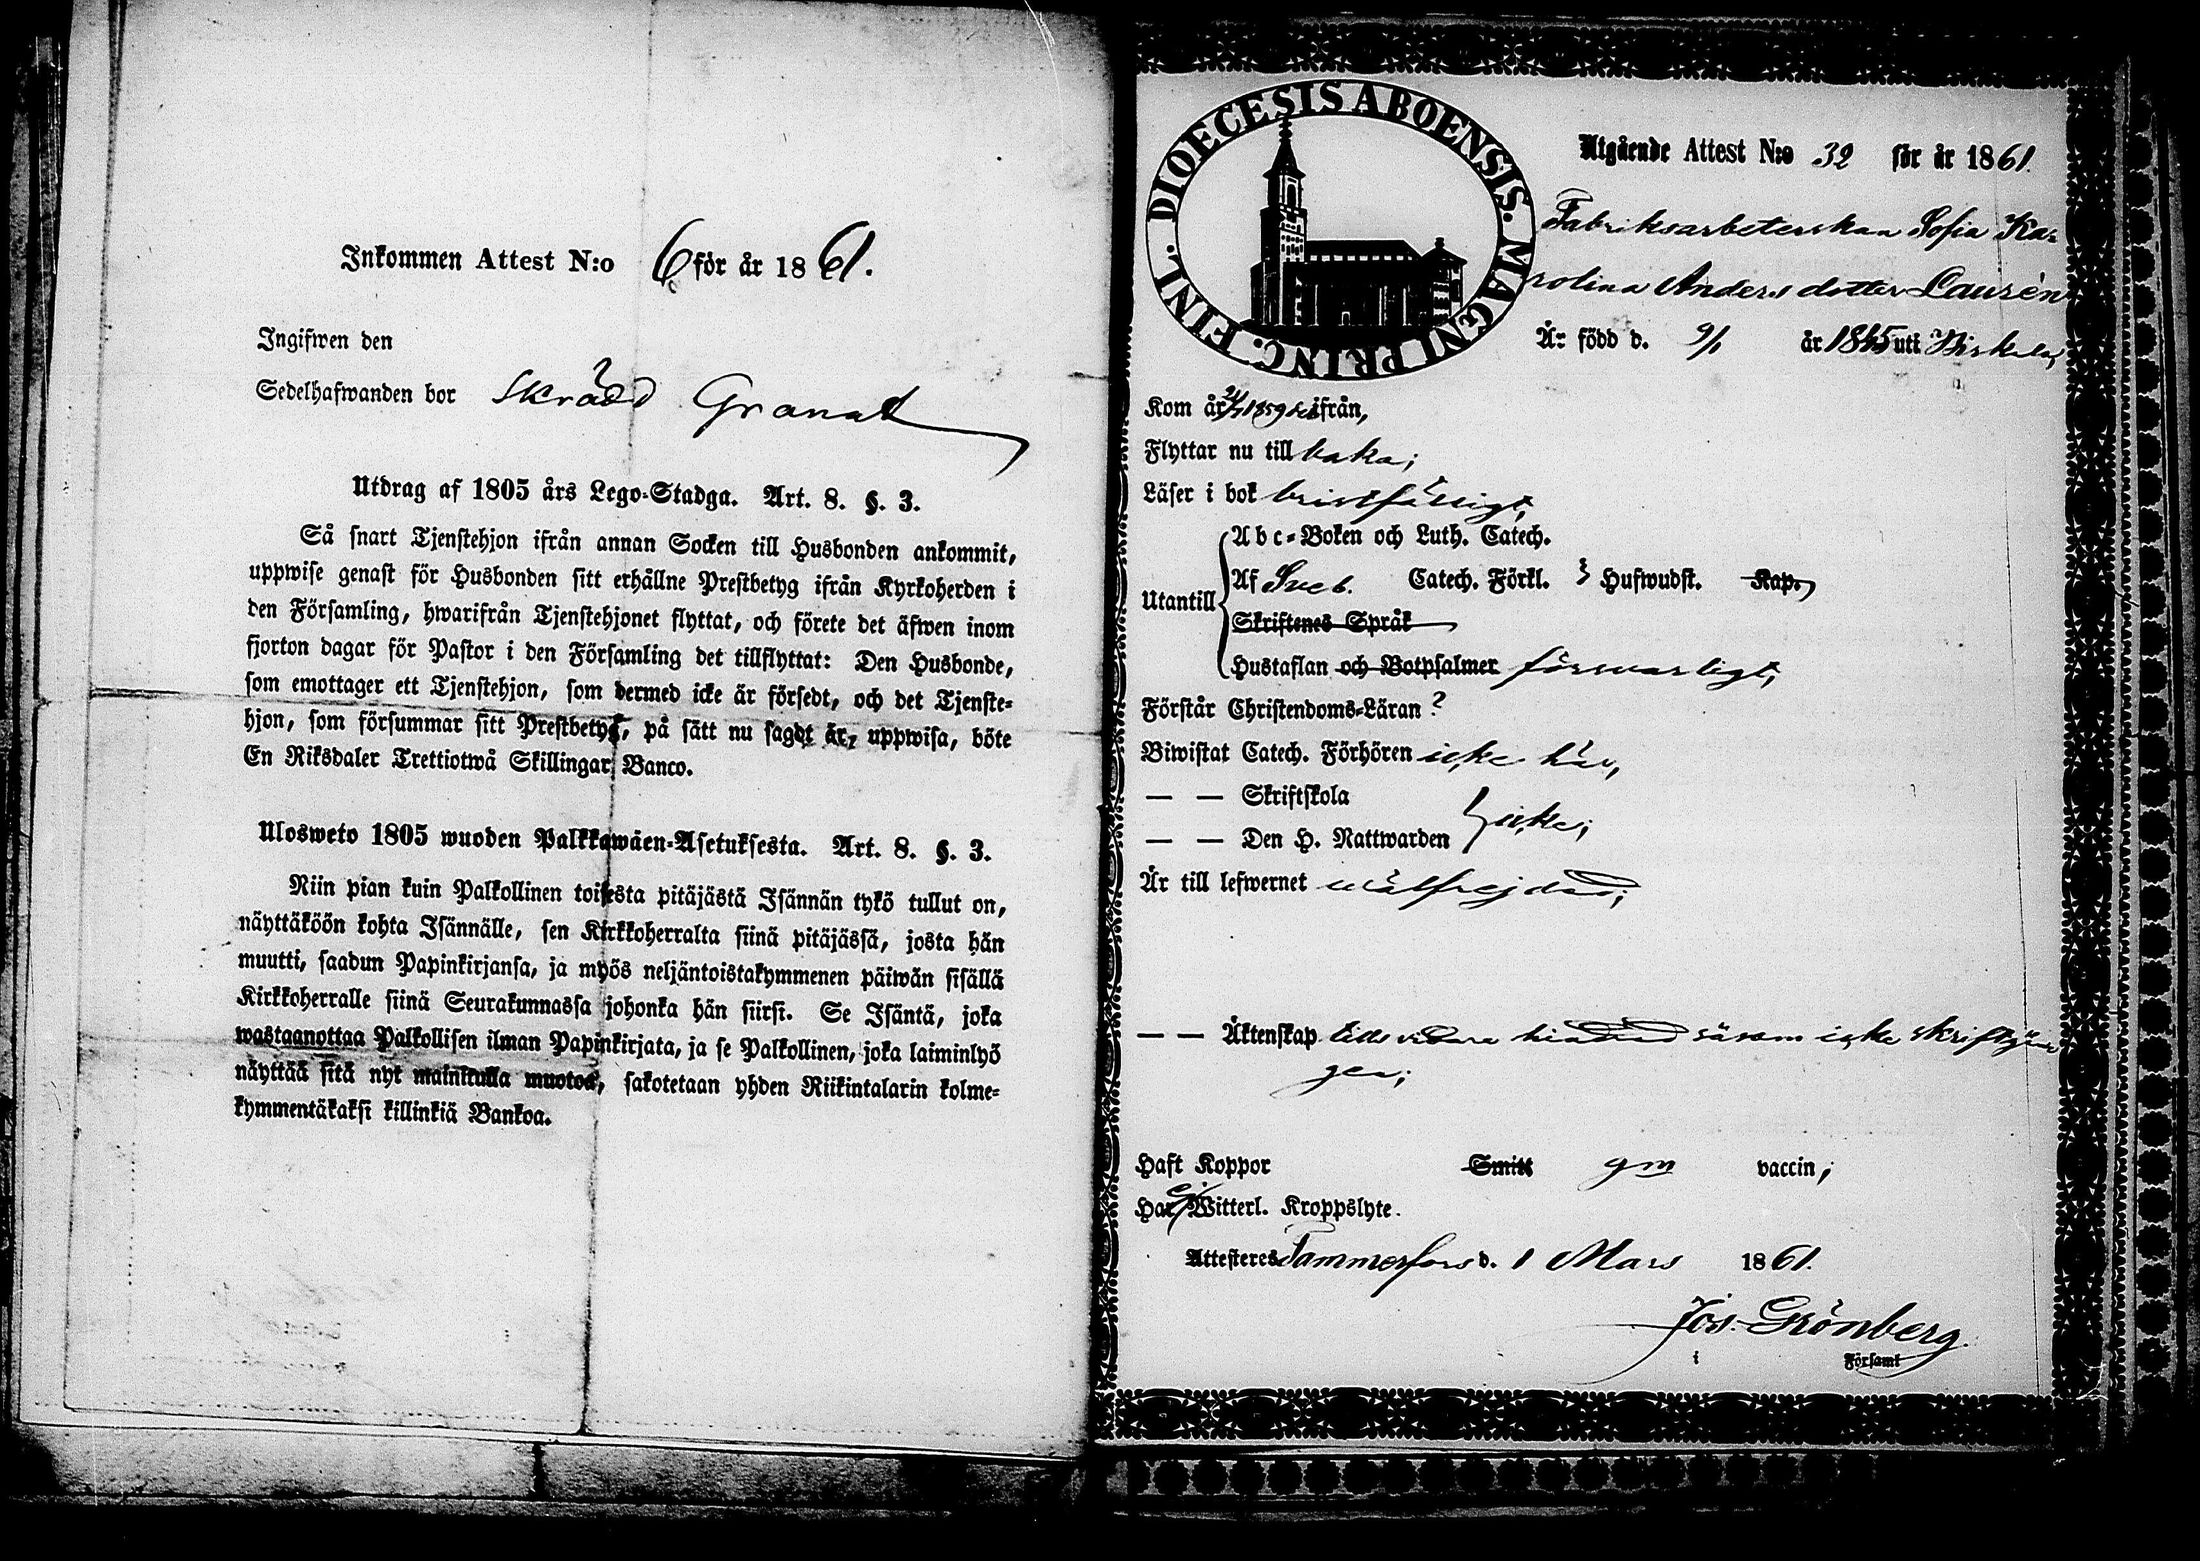 Inkommen Attest N:o 6 för år 1861.
Ingifwen den
Sedelhafwanden bor Skrädd Granat
Utdrag af 1805 års Lego-Stadga. Art. 8. §. 3.
Så snart Tjenstehjon ifrån annan Socken till Husbonden ankommit,
uppwise genast för Husbonden sitt erhållne Prestbetyg ifrån Kyrkoherden i
den Församling, hwarifrån Tjenstehjonet flyttat, och förete det äfwen inom
fjorton dagar för Pastor i den Församling det tillflyttat: Den Husbonde,
som emottager ett Tjenstehjon, som dermed icke är försedt, och det Tjenste-
hjon, som försummar sitt Prestbetyg, på sätt nu sagdt är, uppwisa, böte
En Riksdaler Trettiotwå Skillingar Banco.
Ulosweto 1805 wuoden Palkkawäen-Asetuksesta. Art. 8. §. 3.
Niin pian kuin Palkollinen toisesta pitäjästä Isännän tykö tullut on,
näyttäköön kohta Isännälle, sen Kirkkoherralta siinä pitäjässä, josta hän
muutti, saadun Papinkirjansa, ja myös neljäntoistakymmenen päiwän sisällä
Kirkkoherralle siinä Seurakunnassa johonka hän siirsi. Se Isäntä, joka
wastaanottaa Palkollisen ilman Papinkirjata, ja se Palkollinen, joka laiminlyö
näyttää sitä nyt mainitulla muotoa, sakotetaan yhden Riikintalarin kolme-
kymmentäkaksi killinkiä Bankoa.
DIOECESIS ABOENSIS. MAGNI PRINC. FINL.
Utgående Attest N:o 32 för år 1861.
Fabriksarbeterskan Sofia Ka-
rolina Andersdotter Laurén
Är född d. 9/1 år 1845 uti Birkala,
Kom år 1859 ifrån,
Flyttar nu till baka;
Läser i bok bristfälligt,
Abc-Boken och Luth. Catech.
Utantill Af Sveb. Catech. Förkl. 3 Hufwudst. Kap.,
Skriftenes Språk
Hustaflan och Botpsalmer försvarligt;
Förstår Christendoms-Läran ?
Biwistat Catech. Förhören icke här,
— — Skriftskola
— — Den H. Nattwarden icke;
Är till lefwernet wälfrejdad;
— — Äktenskap tills vidare hindrad såsom icke skriftgån
gen;
Haft Koppor Smitt gm vaccin;
Har ej Witterl. Kroppslyte.
Attesteres Tammerfors d. 1 Mars 1861.
Jos. Grönberg.
i Församl